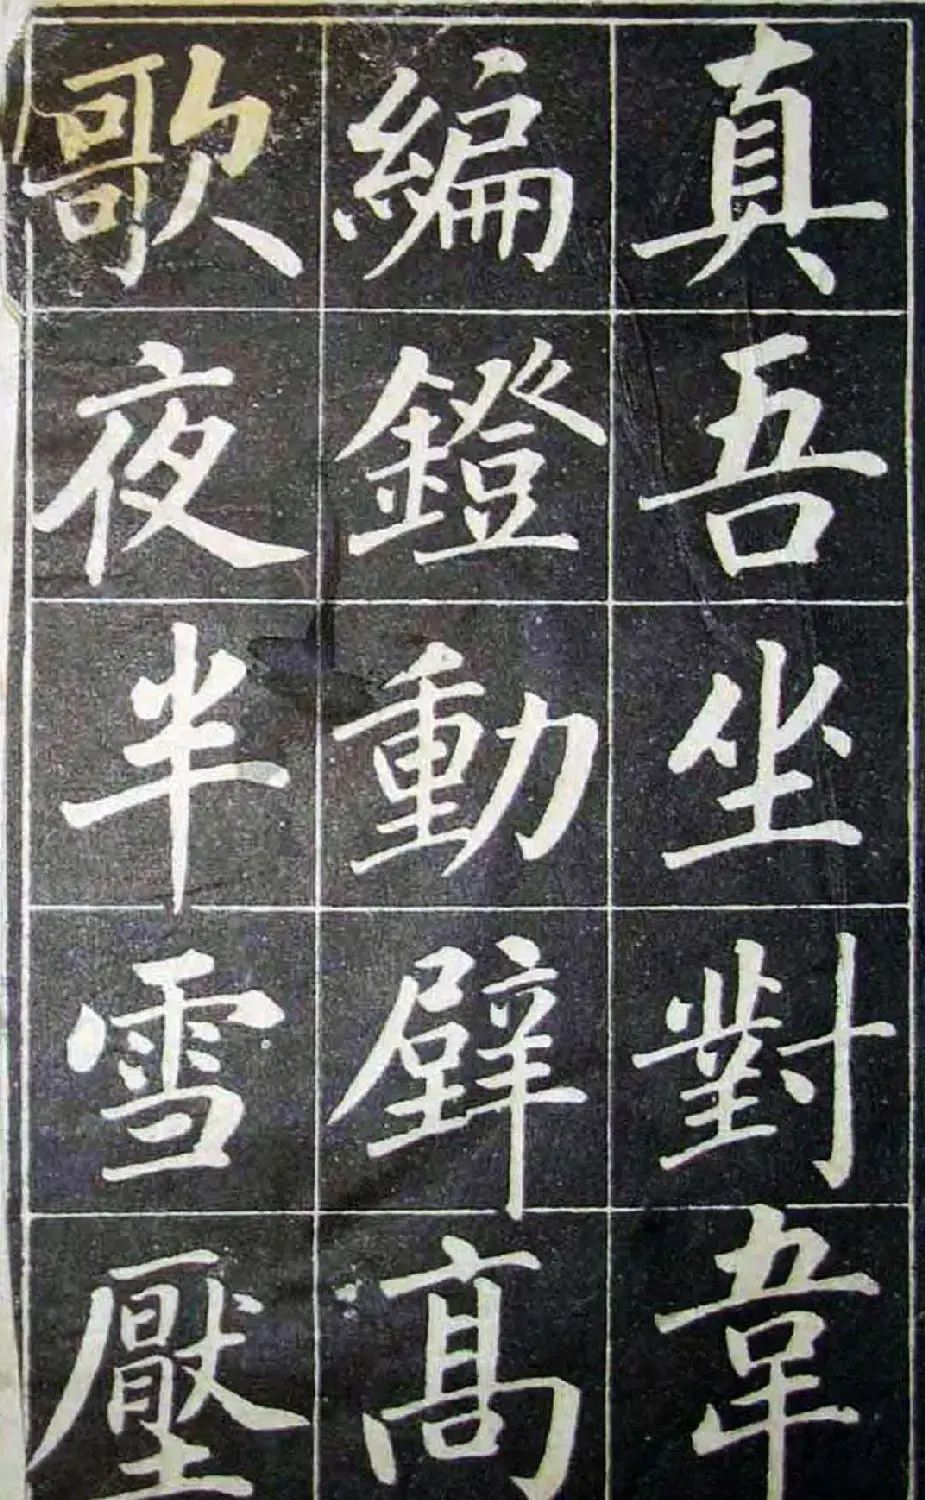 真吾坐對韋
編鐙動壁高
歌夜半雪壓